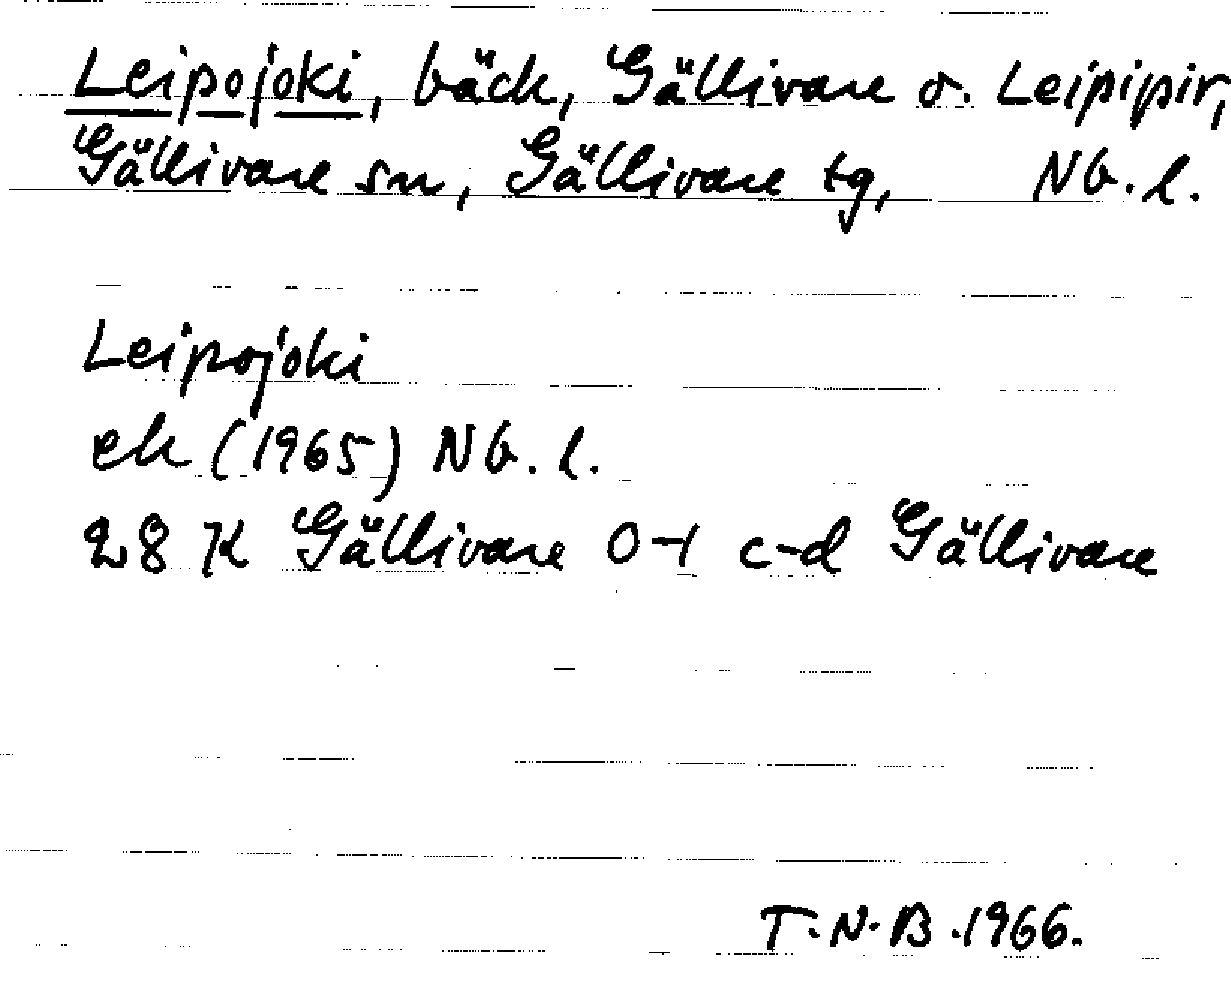 Leipojoki, bäck, Gällivare o. Leipipir,
Gällivare sn, Gällivare tg, Nb. l.
Leipojoki
ek (1965) Nb. l.
28 K Gällivare 0-1 c-d Gällivare
T.N.B. 1966.